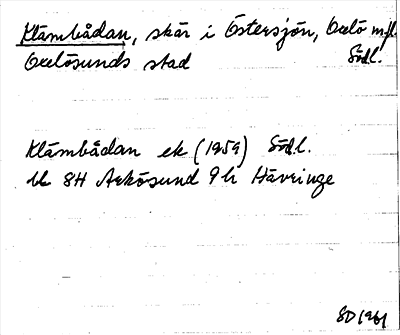 Klämbådan, skär i Östersjön, Oxelö m.fl.
Oxelösunds stad Södl.
Klämbådan ek (1959) Södl.
bl. 8H Arkösund 9h Hävringe
SD 1961